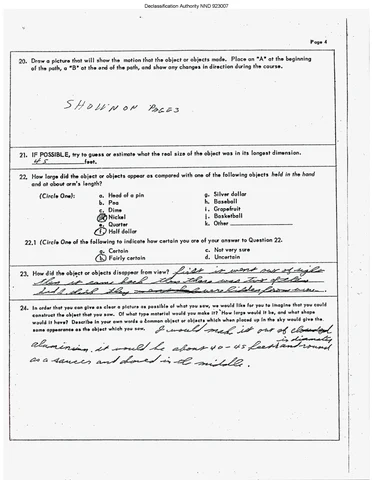 Declassification Authority NND 923007
Page 4
20. Draw a picture that will show the motion that the object or objects made. Place an "A" at the beginning
of the path, a "B" at the end of the path, and show any changes in direction during the course.
SHOWN ON PAGE
21. IF POSSIBLE, try to guess or estimate what the real size of the object was in its longest dimension.
45 feet.
22. How large did the object or objects appear as compared with one of the following objects held in the hand
and at about arm's length?
(Circle One): a. Head of a pin g. Silver dollar
b. Pea h. Baseball
c. Dime i. Grapefruit
d. Nickel j. Basketball
e. Quarter k. Other
f. Half dollar
22.1 (Circle One of the following to indicate how certain you are of your answer to Question 22.
a. Certain c. Not very sure
b. Fairly certain d. Uncertain
23. How did the object or objects disappear from view? first it went out of sight
then it came back then there was two of them
were hidden from view
24. In order that you can give as clear a picture as possible of what you saw, we would like for you to imagine that you could
construct the object that you saw. Of what type material would you make it? How large would it be, and what shape
would it have? Describe in your own words a common object or objects which when placed up in the sky would give the
same appearance as the object which you saw. I would make it out of clouded
in diameter
aluminium, it would be about 40-45 feet and round
as a saucer and domed in the middle.